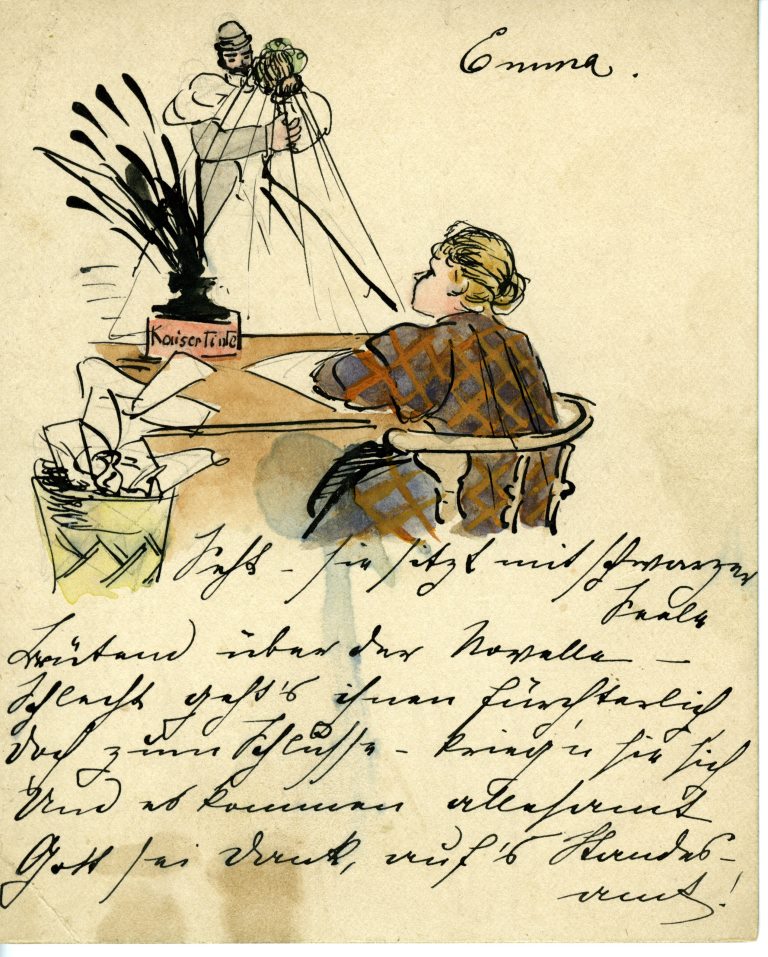 Emma.
KaiserTinte
Seht – sie sitzt mit schwarzer
Seele
Brütend über der Novelle –
Schlecht geht's ihnen fürchterlich
Doch zum Schlusse – krieg'n sie sich
Und es kommen allesamt
Gott sei Dank, auf's Standes-
amt!